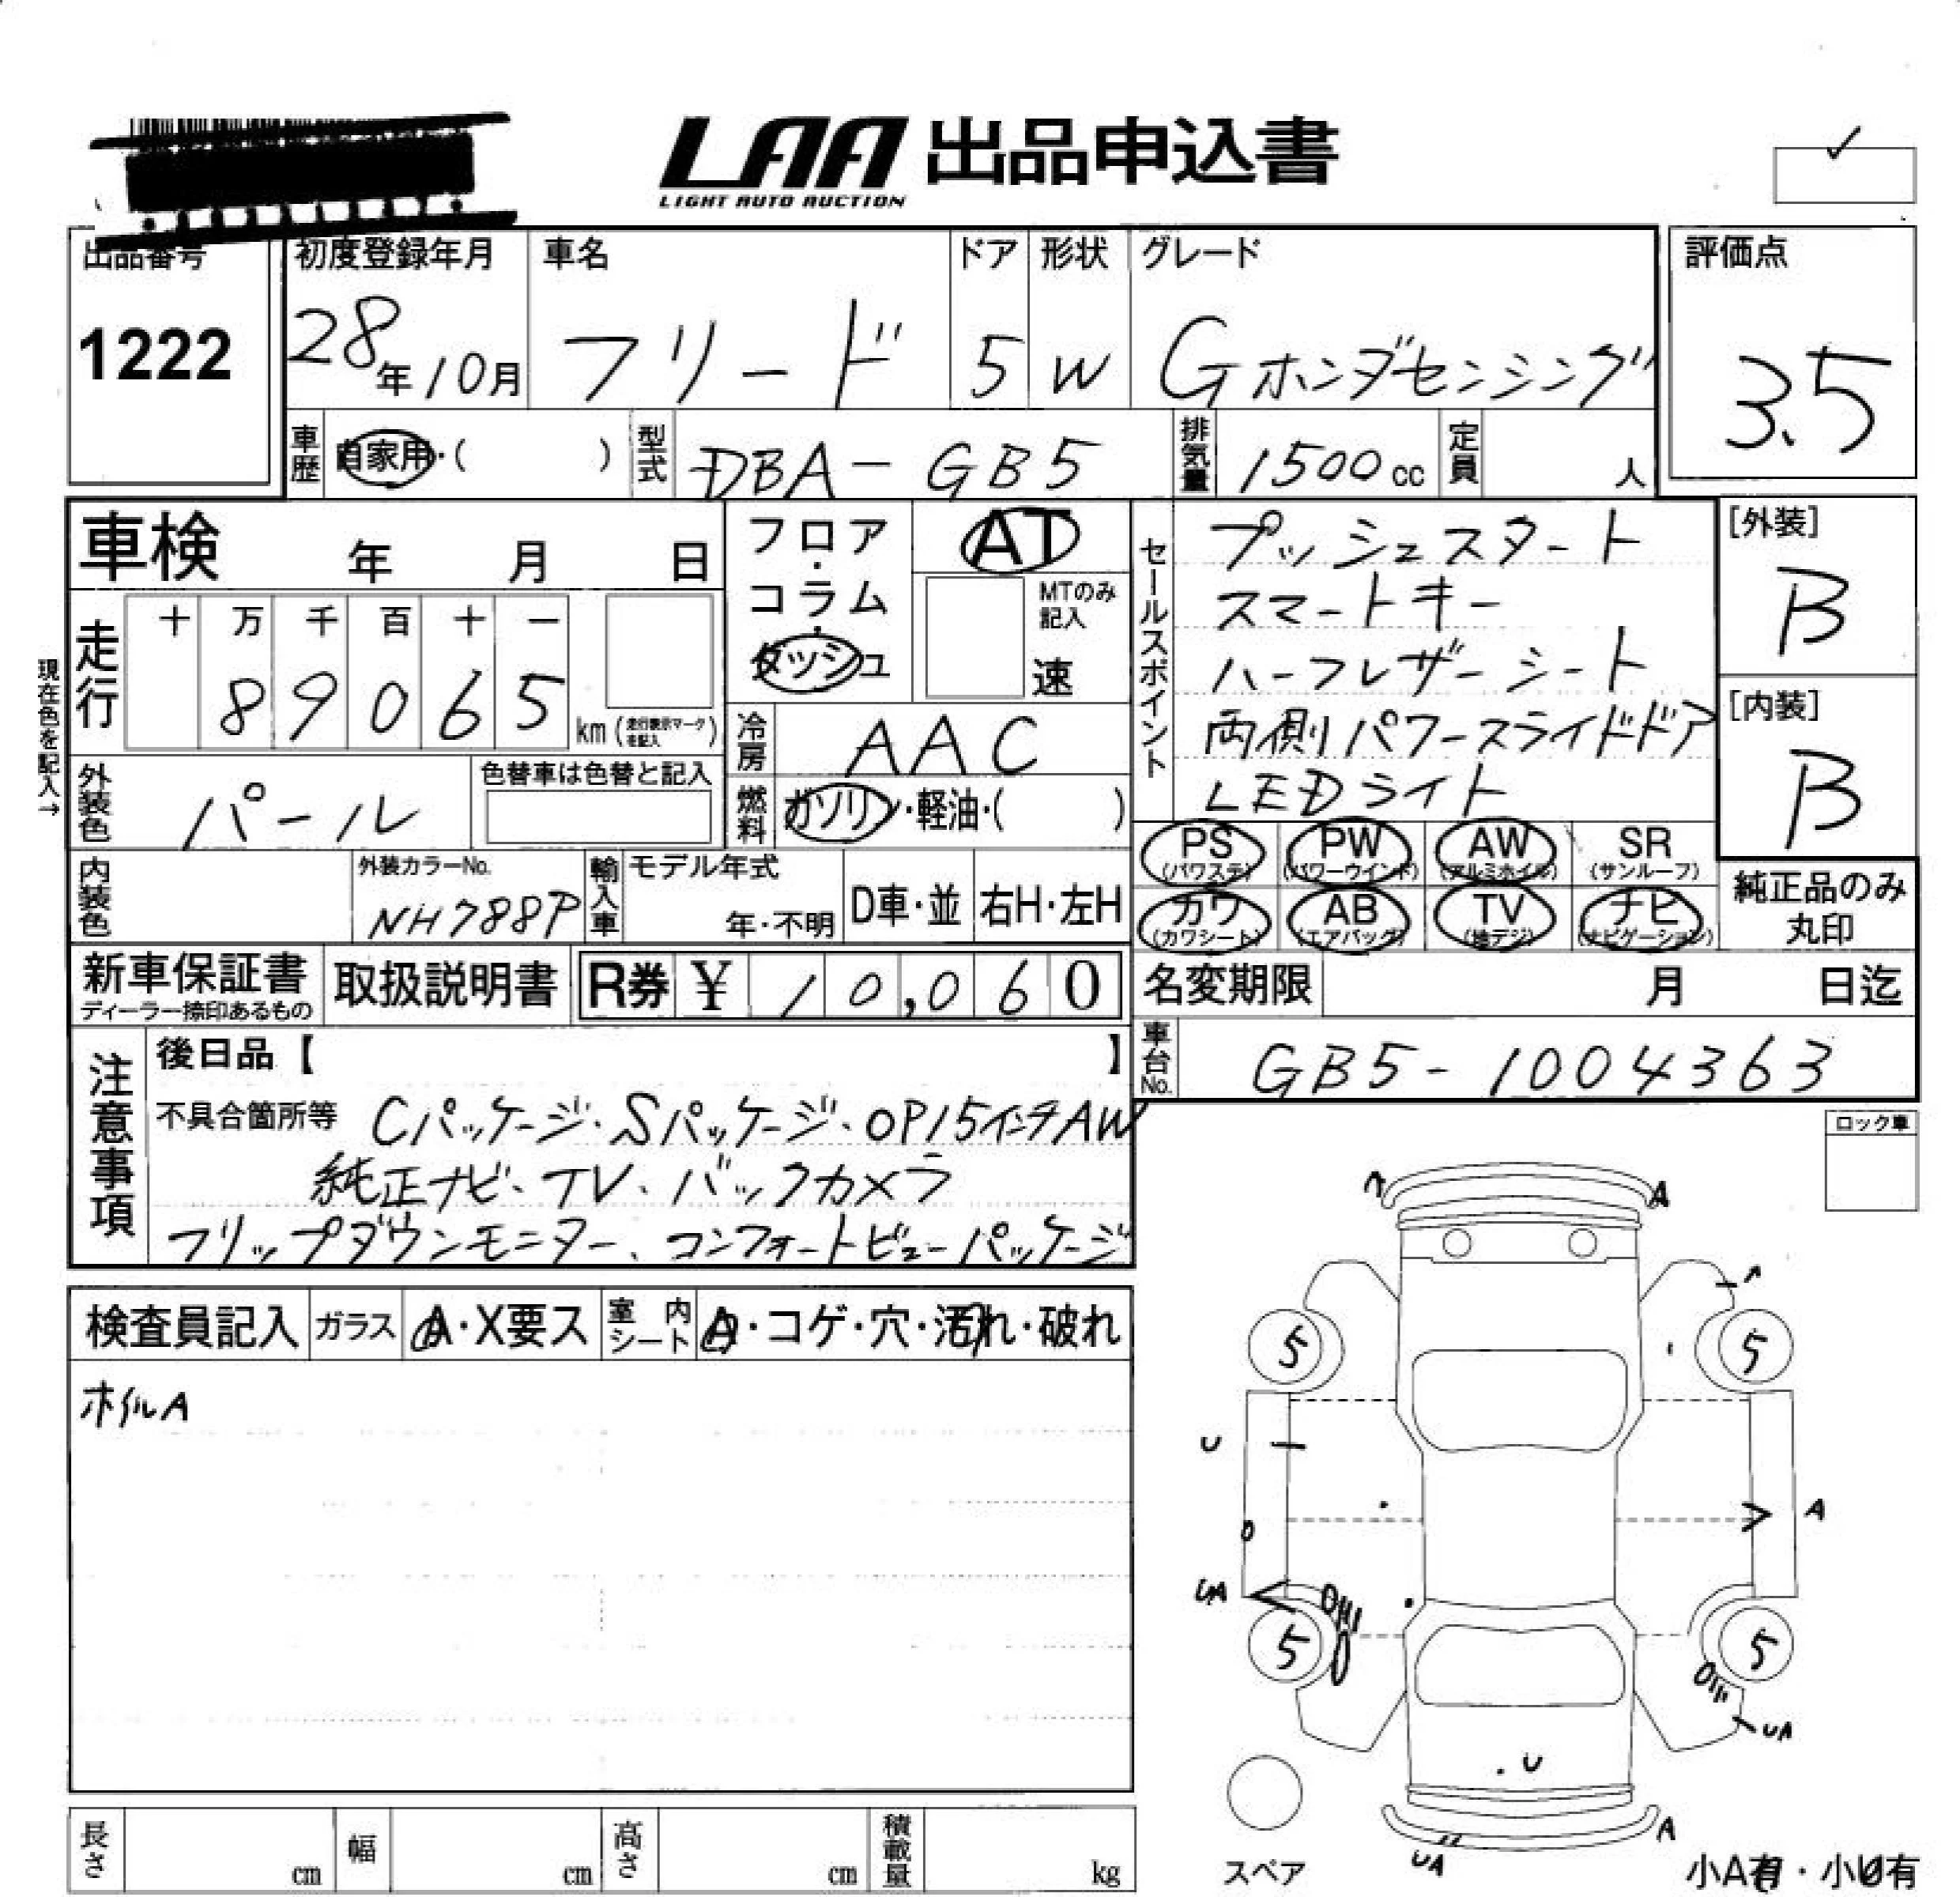 LAA 出品申込書
LIGHT AUTO AUCTION
出品番号 初度登録年月 車名 ドア 形状 グレード 評価点
1222 28年10月 フリード 5 W Gホンダセンシング 3.5
車歴 自家用・( ) 型式 DBA-GB5 排気量 1500cc 定員 人
車検 年 月 日
フロア・コラム・ダッシュ
AT
MTのみ記入
速
セールスポイント
プッシュスタート
スマートキー
ハーフレザーシート
両側パワースライドドア
LEDライト
[外装]
B
[内装]
B
現在色を記入→
走行 十 万 千 百 十 一
89065 km (走行表示マークを記入)
冷房 AAC
外装色 パール 色替車は色替と記入
燃料 ガソリン・軽油・( )
PS (パワステ) PW (パワーウインド) AW (アルミホイル) SR (サンルーフ)
カワ (カワシート) AB (エアバッグ) TV (地デジ) ナビ (ナビゲーション)
純正品のみ丸印
内装色 外装カラーNo. NH788P 輸入車 モデル年式 年・不明 D車・並 右H・左H
新車保証書 ディーラー捺印あるもの 取扱説明書 R券 ¥ 10,060
名変期限 月 日迄
車台No. GB5-1004363
注意事項
後日品【 】
不具合箇所等 Cパッケージ・Sパッケージ・OP15インチAW
純正ナビ、TV、バックカメラ
フリップダウンモニター、コンフォートビューパッケージ
ロック車
検査員記入 ガラス A・X要ス 室内シート A・コゲ・穴・汚れ・破れ
ホイルA
A
5 5
U
A
UA
5 5
UA
U
A
UA
スペア
小A有・小U有
長さ cm 幅 cm 高さ cm 積載量 kg